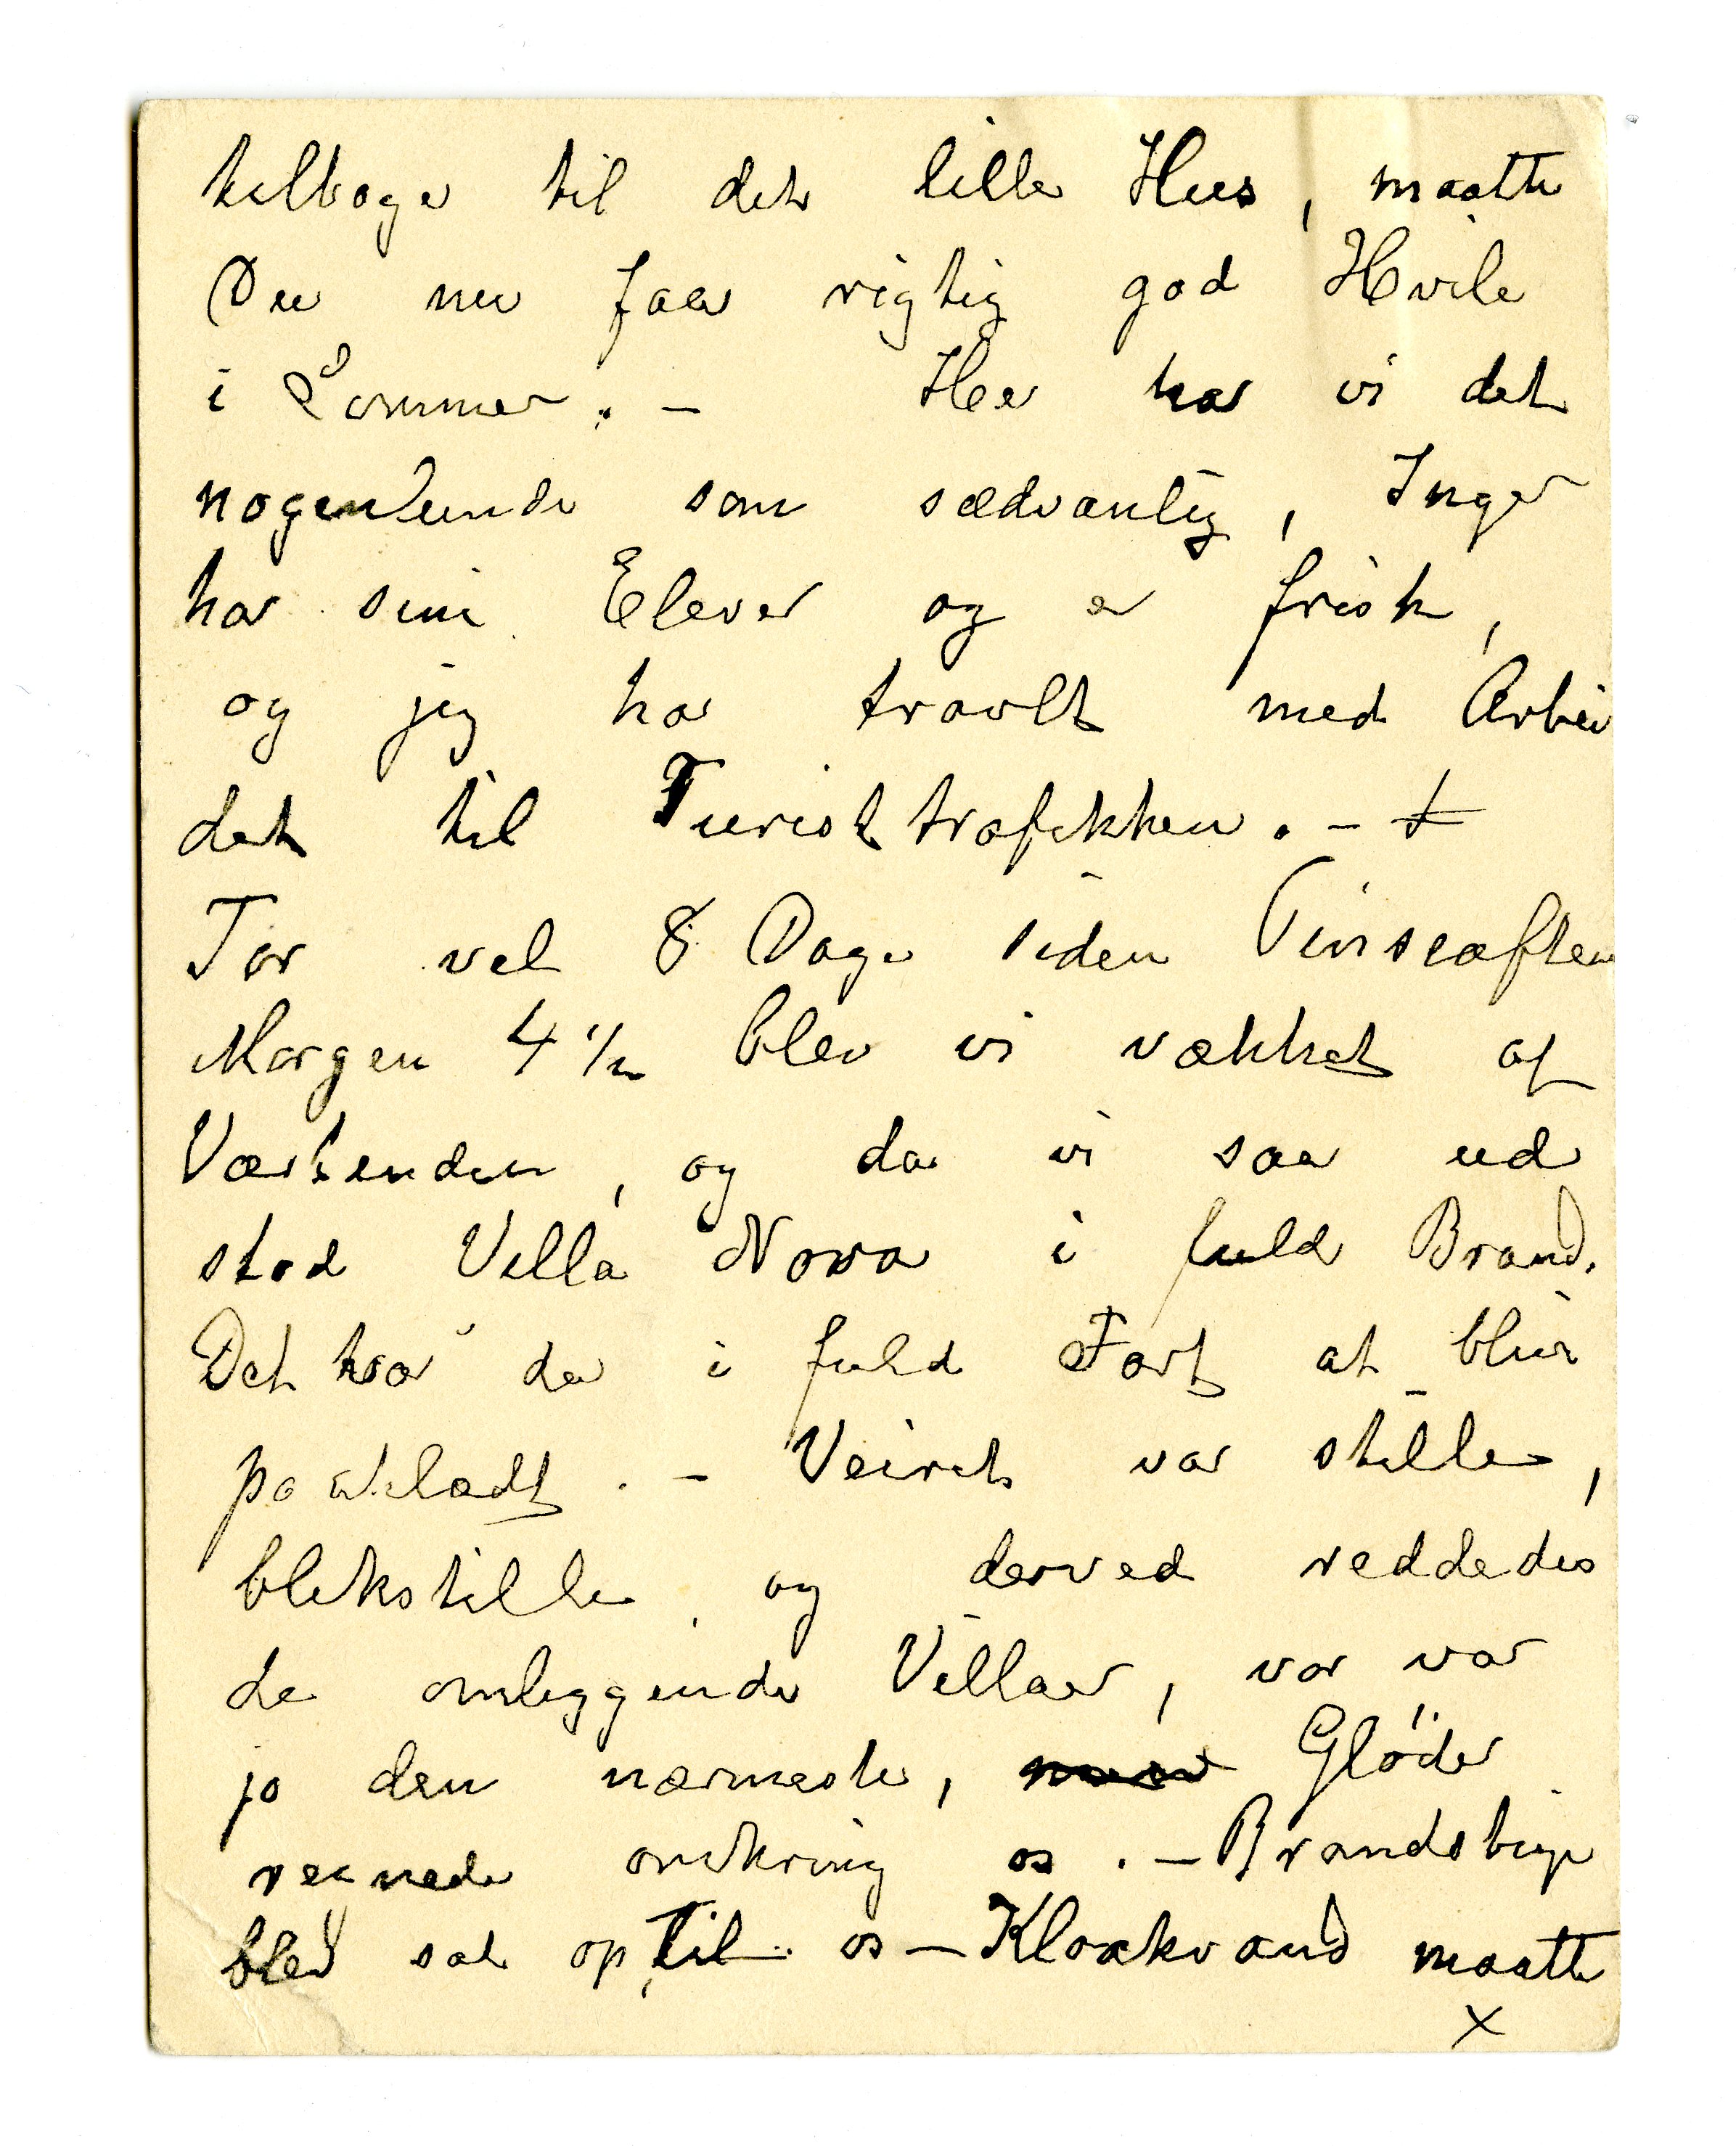 tilbage til det lille Hus, maatte
Du nu faa rigtig god Hvile
i Sommer. - Her har vi det
nogenlunde som sædvanlig, Inga
har sine Elever og er frisk,
og jeg har travlt med Arbei
det til Turisttrafikken. - +
For vel 8 Dage siden Pinseaften
Morgen 4 1/2 blev vi vækket af
Værtinden, og da vi saa ud
stod Villa Nova i fuld Brand.
Det var da i fuld Fart at blive
paaklædt. - Veiret var stille,
blikstille, og derved reddedes
de omliggende Villaer, vor var
ja den nærmeste, Gløder
regnede omkring os. - Brandstige
blev sat op til os - Kloakvand maatte
x